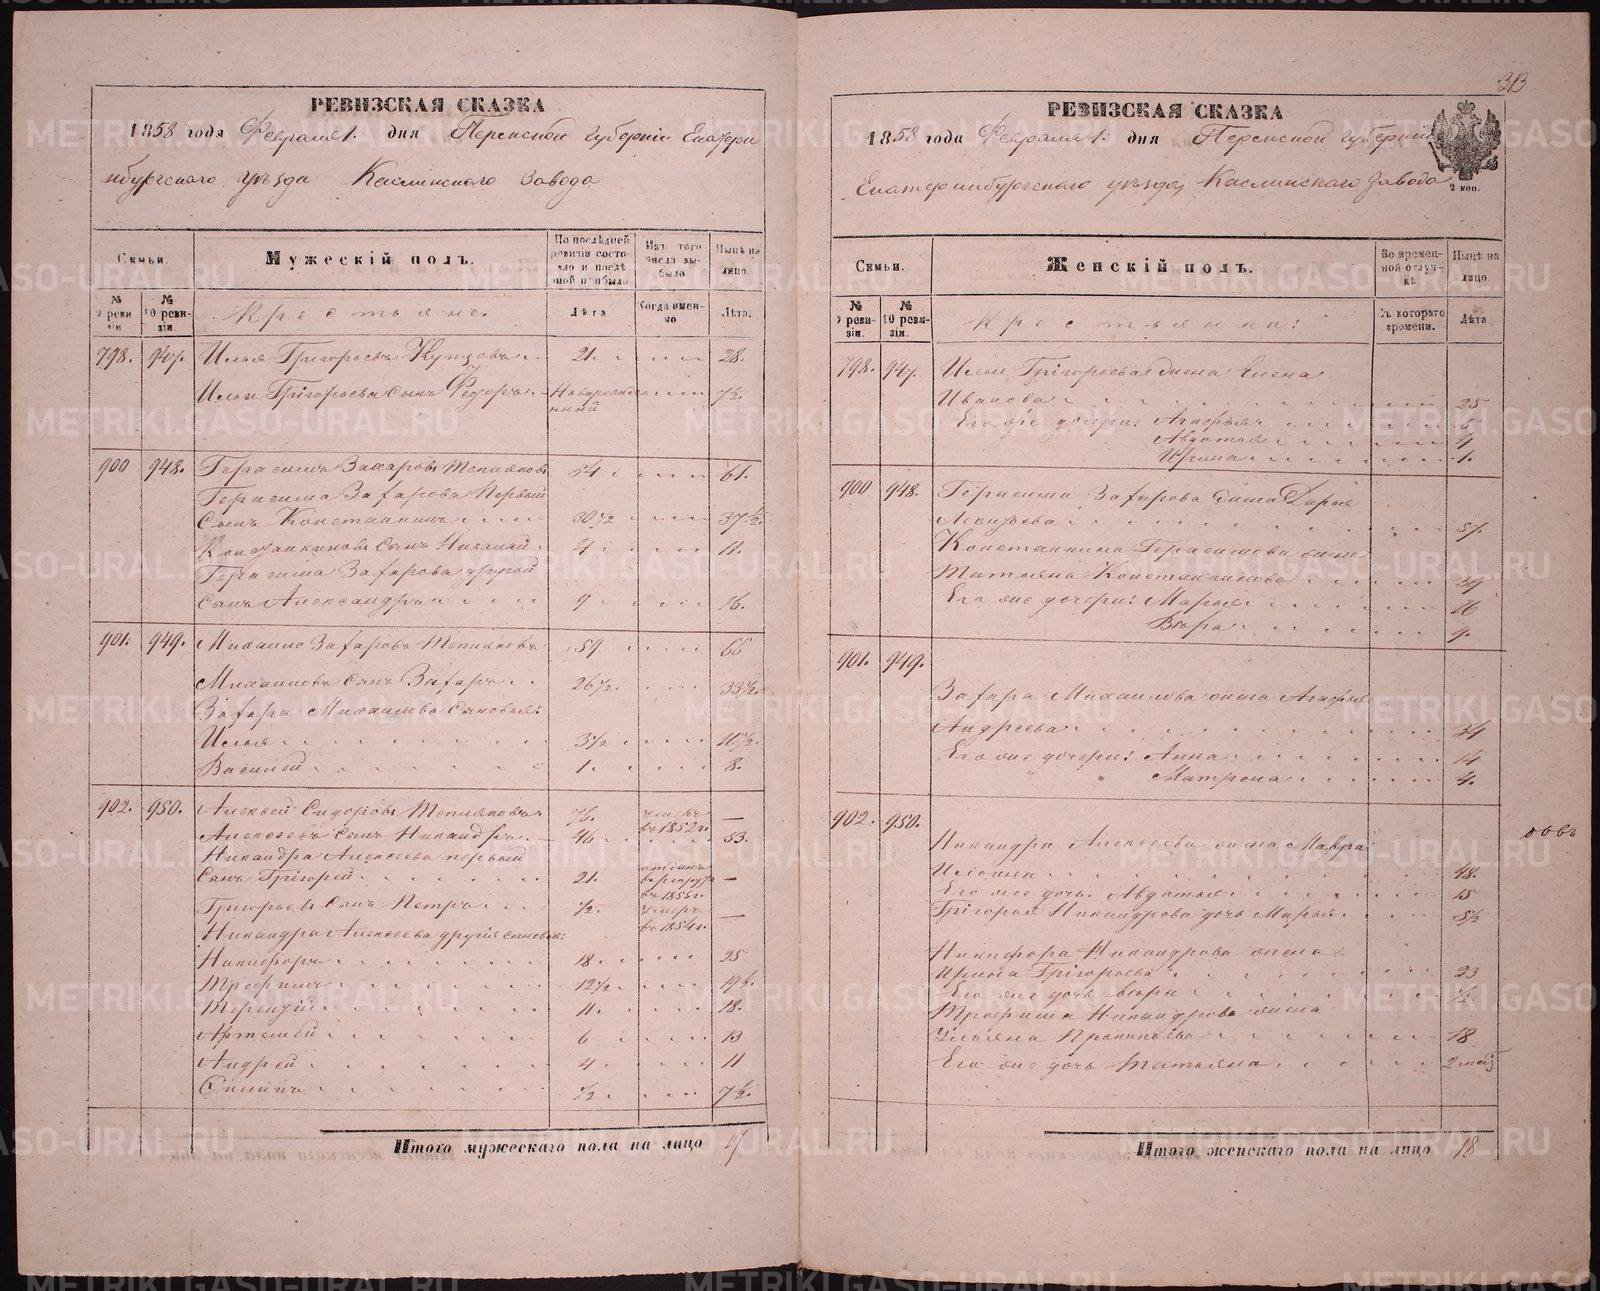 РЕВИЗСКАЯ СКАЗКА
1858 года Февраля 1. дня Пермской губерніи Екатери
нбургскаго уѣзда Каслинскаго Завода
Семьи.
Мужескій полъ.
По послѣдней ревизіи состояло и послѣ оной прибыло
Изъ того числа выбыло
Нынѣ на лицо.
№ 9 ревизіи
№ 10 ревизіи.
Крестьяне.
Лѣта
Когда именно
Лѣта.
798. 947. Илья Григорьевъ 21. 28.
Ильи Григорьева сынъ Федоръ Новорожденный 7½.
900 948. Герасимъ Захаровъ Тепляковъ 54 61.
Герасима Захарова Первый
Сынъ Константинъ 30½ 37½.
Константиновъ Сынъ Николай 4 11.
Герасима Захарова другой
Сынъ Александръ 9 16.
901. 949. Михаило Захаровъ Тепляковъ 59 66
Михаиловъ Сынъ Захаръ 26½. 33½.
Захара Михаилова Сыновья:
Илья 3½ 10½.
Василей 1. 8.
902. 950. Алексей Сидоровъ Тепляковъ 76. умеръ въ 1852 г. —
Алексеевъ Сынъ Никандръ 46 53.
Никандра Алексеева первый
Сынъ Григорей 21. отданъ въ рекруты въ 1855 г. —
Григорьевъ Сынъ Петръ ½. умеръ въ 1854 г. —
Никандра Алексеева другія сыновья:
Никифоръ 18 25
Трофимъ 12½ 19½.
Терентій 11. 18.
Артемей 6 13
Андрей 4 11
Филипъ ½ 7½.
Итого мужескаго пола на лицо 17
313
РЕВИЗСКАЯ СКАЗКА
1858 года Февраля 1. дня Пермской губерніи
2 коп.
Екатеринбургскаго уѣзда, Каслинскаго Завода
Семьи.
Женскій полъ.
Во временной отлучкѣ
Нынѣ на лицо.
№ 9 ревизіи.
№ 10 ревизіи.
Крестьянки:
Съ котораго времени.
Лѣта
798. 947. Ильи Григорьева жена Елена
Иванова 25
Его же дочери: Агафья 5
Авдотья 4
Ирина 1.
900 948. Герасима Захарова жена Дарья
57.
Константина Герасимова жена
Татьяна Константинова 39
Его же дочери: Марья 16
Вѣра 9.
901. 949.
Захара Михаилова жена Агафья
Андреева 34
Его же дочери: Анна 14
Матрена 4.
902. 950.
Никандра Алексеева жена Мавра
48.
Его же дочь Авдотья 15
Григорья Никандрова дочь Марья 5½
Никифора Никандрова жена
Ирина Григорьева 23
Его же дочь Вѣра ½
Трофима Никандрова жена
Ульяна Прокопьева 18
Его же дочь Татьяна 2 мес.
Итого женскаго пола на лицо 18
METRIKI.GASO-URAL.RU